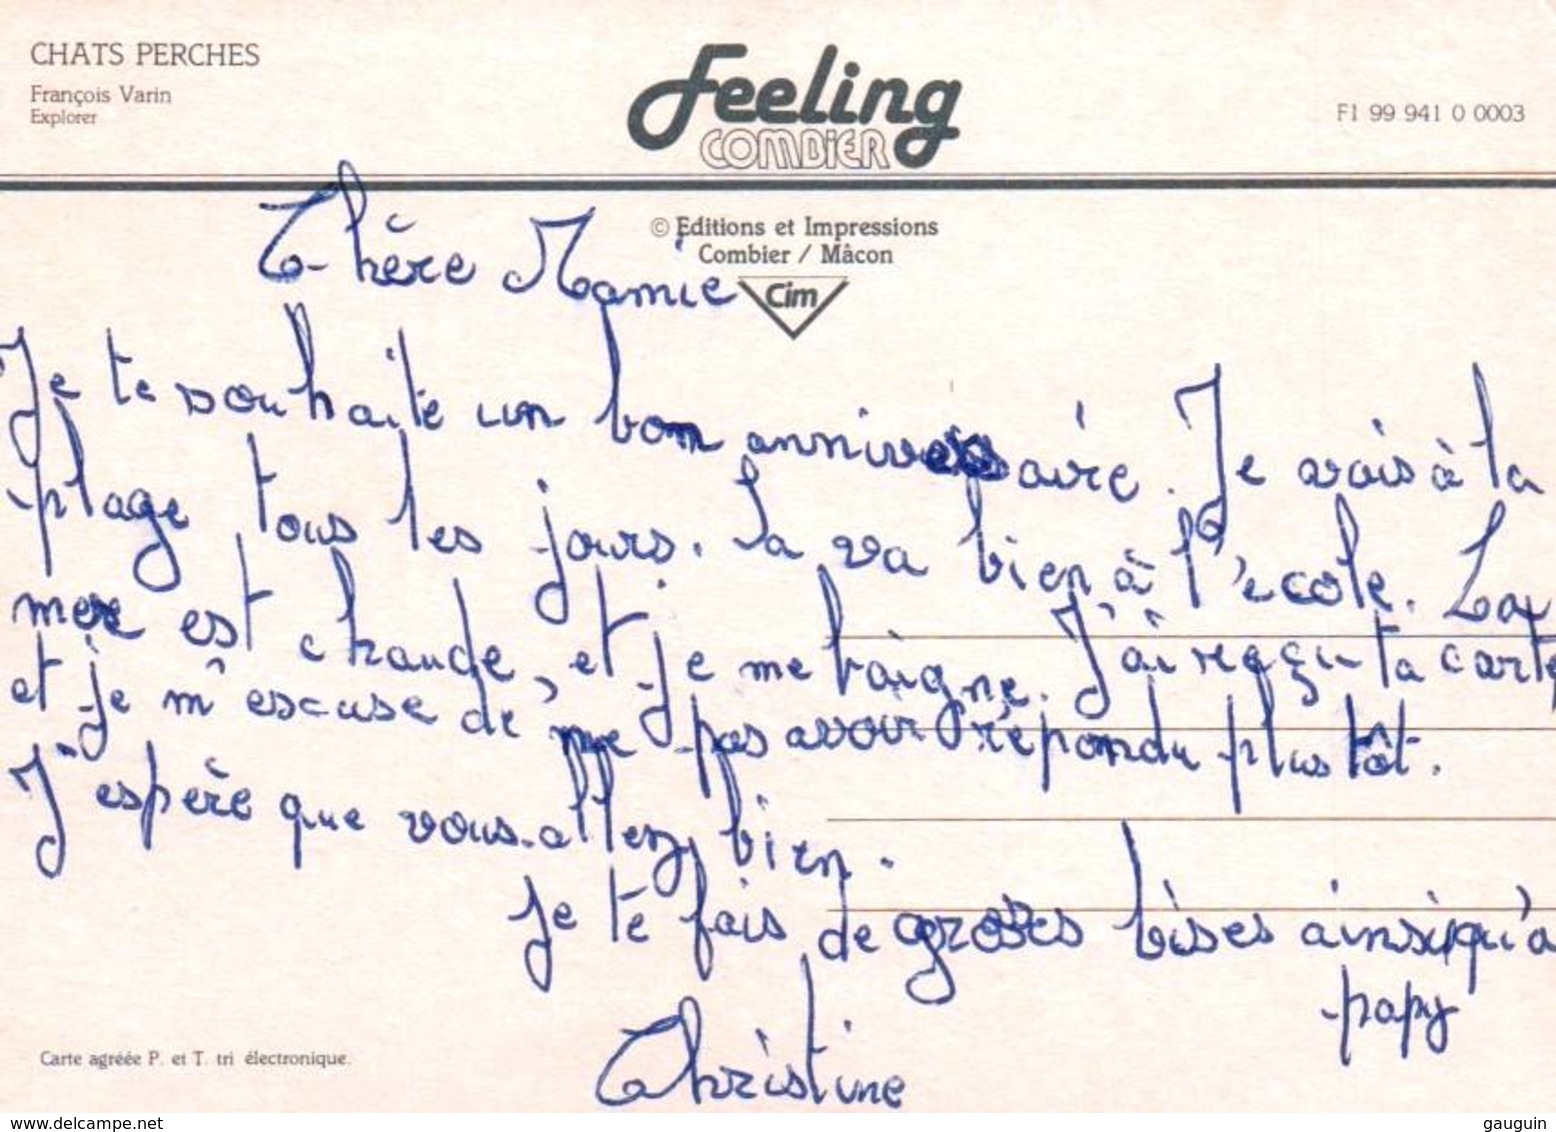 CHATS PERCHES
François Varin
Explorer
Feeling
COMBiER
F1 99 941 0 0003
© Editions et Impressions
Combier / Mâcon
Cim
Chère Mamie
Je te souhaite un bon anniversaire. Je vais à la
plage tous les jours. Sa va bien à l'école. La
mer est chaude, et je me baigne. J'ai reçu ta carte
et je m'escuse de ne pas avoir répondu plus tôt.
J'espère que vous allez bien.
Je te fais de groses bises ainsi qu'a
papy
Christine
Carte agréée P. et T. tri électronique.
www.delcampe.net
gauguin